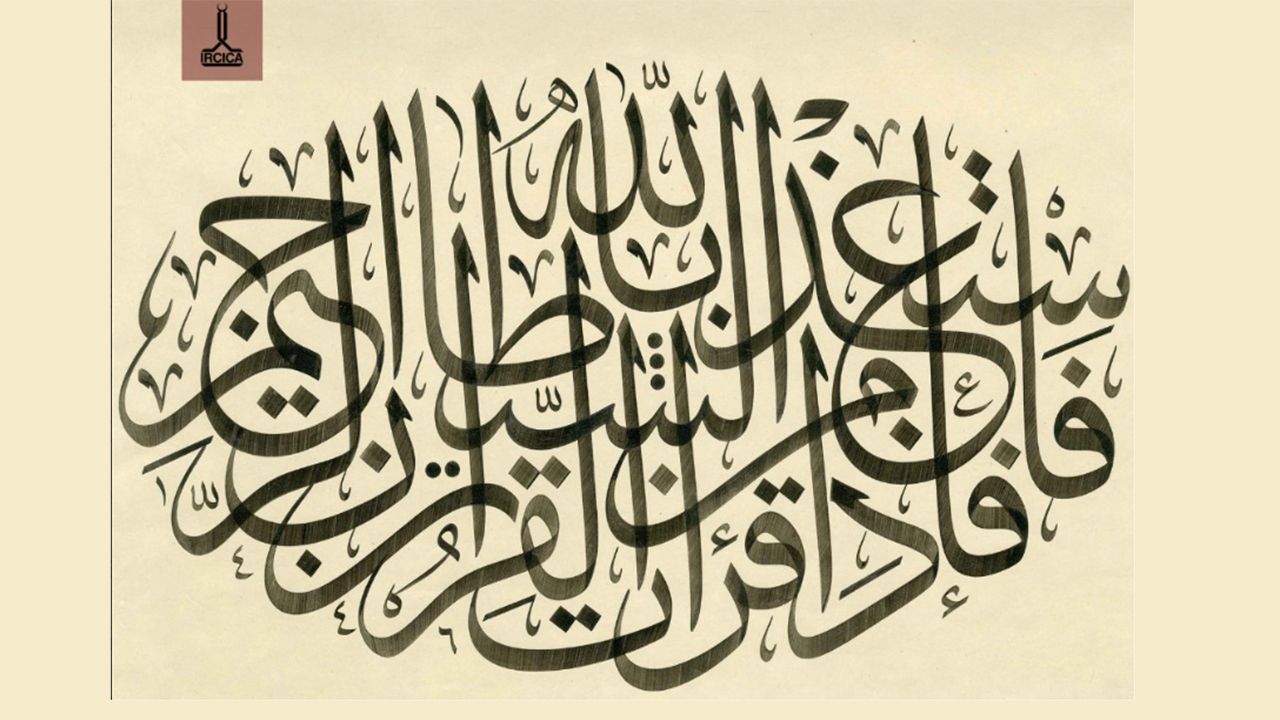 IRCICA
فَإِذَا قَرَأْتَ الْقُرْآنَ فَاسْتَعِذْ بِاللَّهِ مِنَ الشَّيْطَانِ الرَّجِيمِ